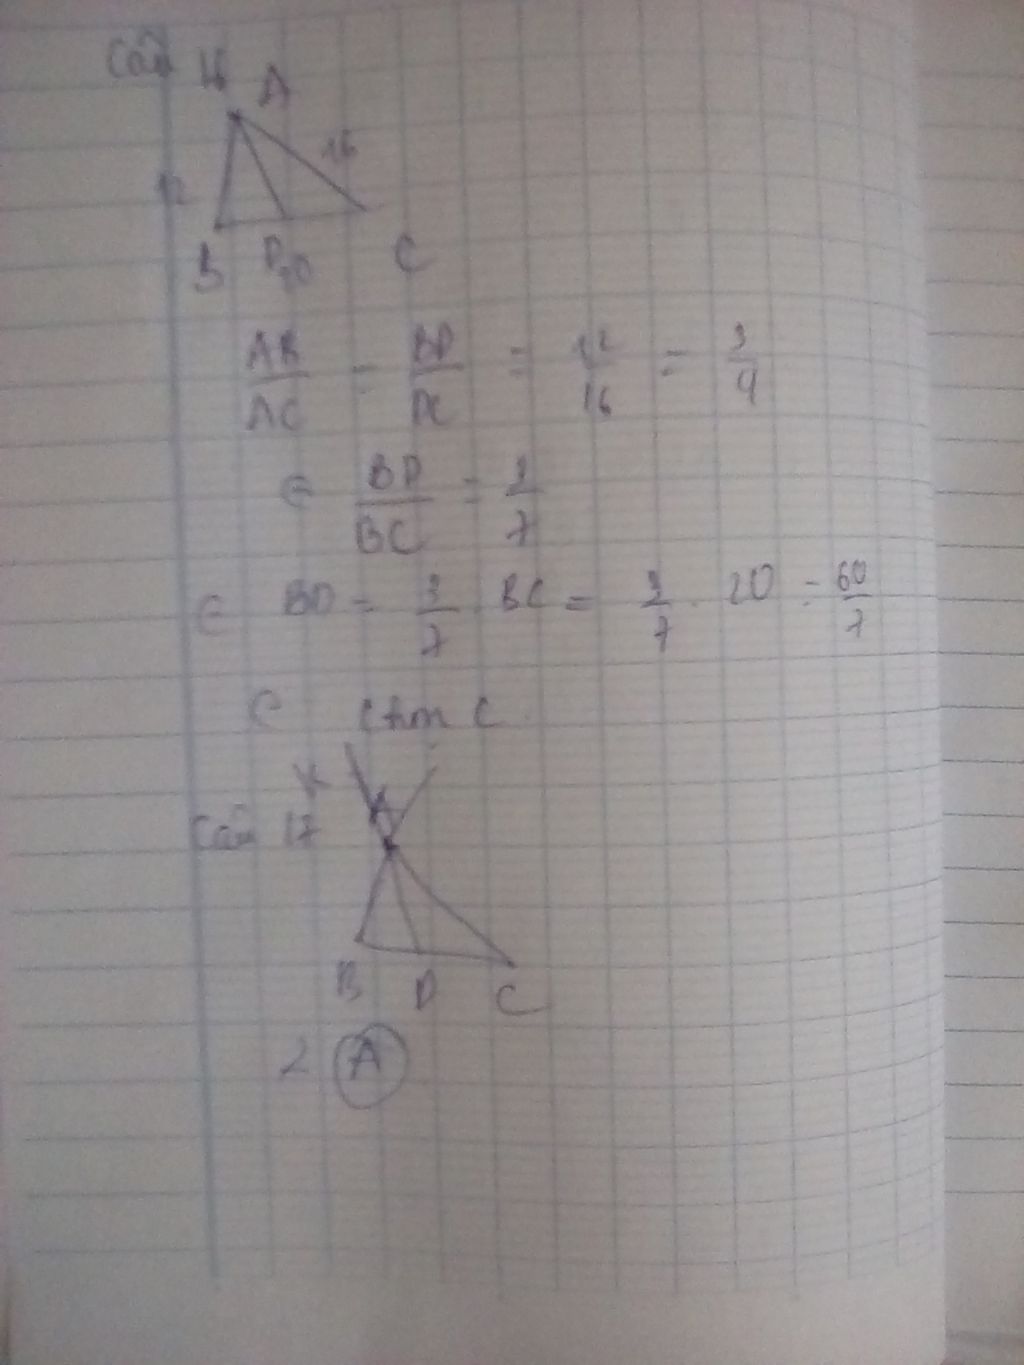 Câu 16
A
12 16
B D 20 C
AB/AC = BD/DC = 12/16 = 3/4
BD/BC = 3/7
BD = 3/7 . BC = 3/7 . 20 = 60/7
C
x
A
Câu 17
B D C
A